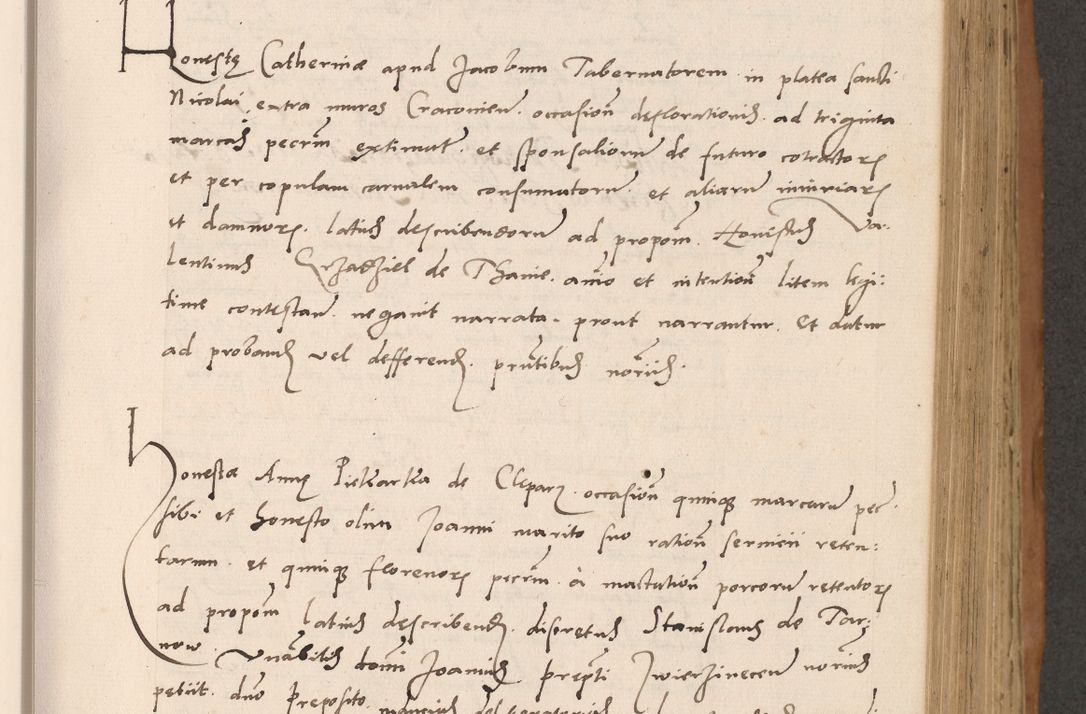 Honestę Catherinæ apud Jacobum Tabernatorem in platea sancti
Nicolai extra muros Cracovien̄. occasion̄ deflorationis. ad triginta
marcas pecun̄ extimat̄. et sponsaliorum de futuro cōtractorꝝ
et per copulam carnalem consumatorū. et aliarū iniuriarꝝ
et damnorꝝ. latius describendorū ad propoīm. Honestus Va-
lentinus de Thanie. anīo et intention̄ litem legi:
time contestan̄. negavit narrata. prout narrantur. Et datur
ad proband̄ vel defferend̄. prn̄tibus nōrijs.
Honesta Anna Piekarka de Cleparz. occasion̄ quinqꝫ marcarū pec̄.
sibi et honesto olim Joanni marito suo ration̄ servicii reten:
tarum. et quinqꝫ florenorꝝ pecun̄. a mactation̄ porcorū retentorꝝ
ad propoīm latius describend̄. discretus Stanislaus de Tar:
now. Vn̄abilis domī Joannis prepti Zwierzinecen̄ norius
petiit. dn̄o Preposito.